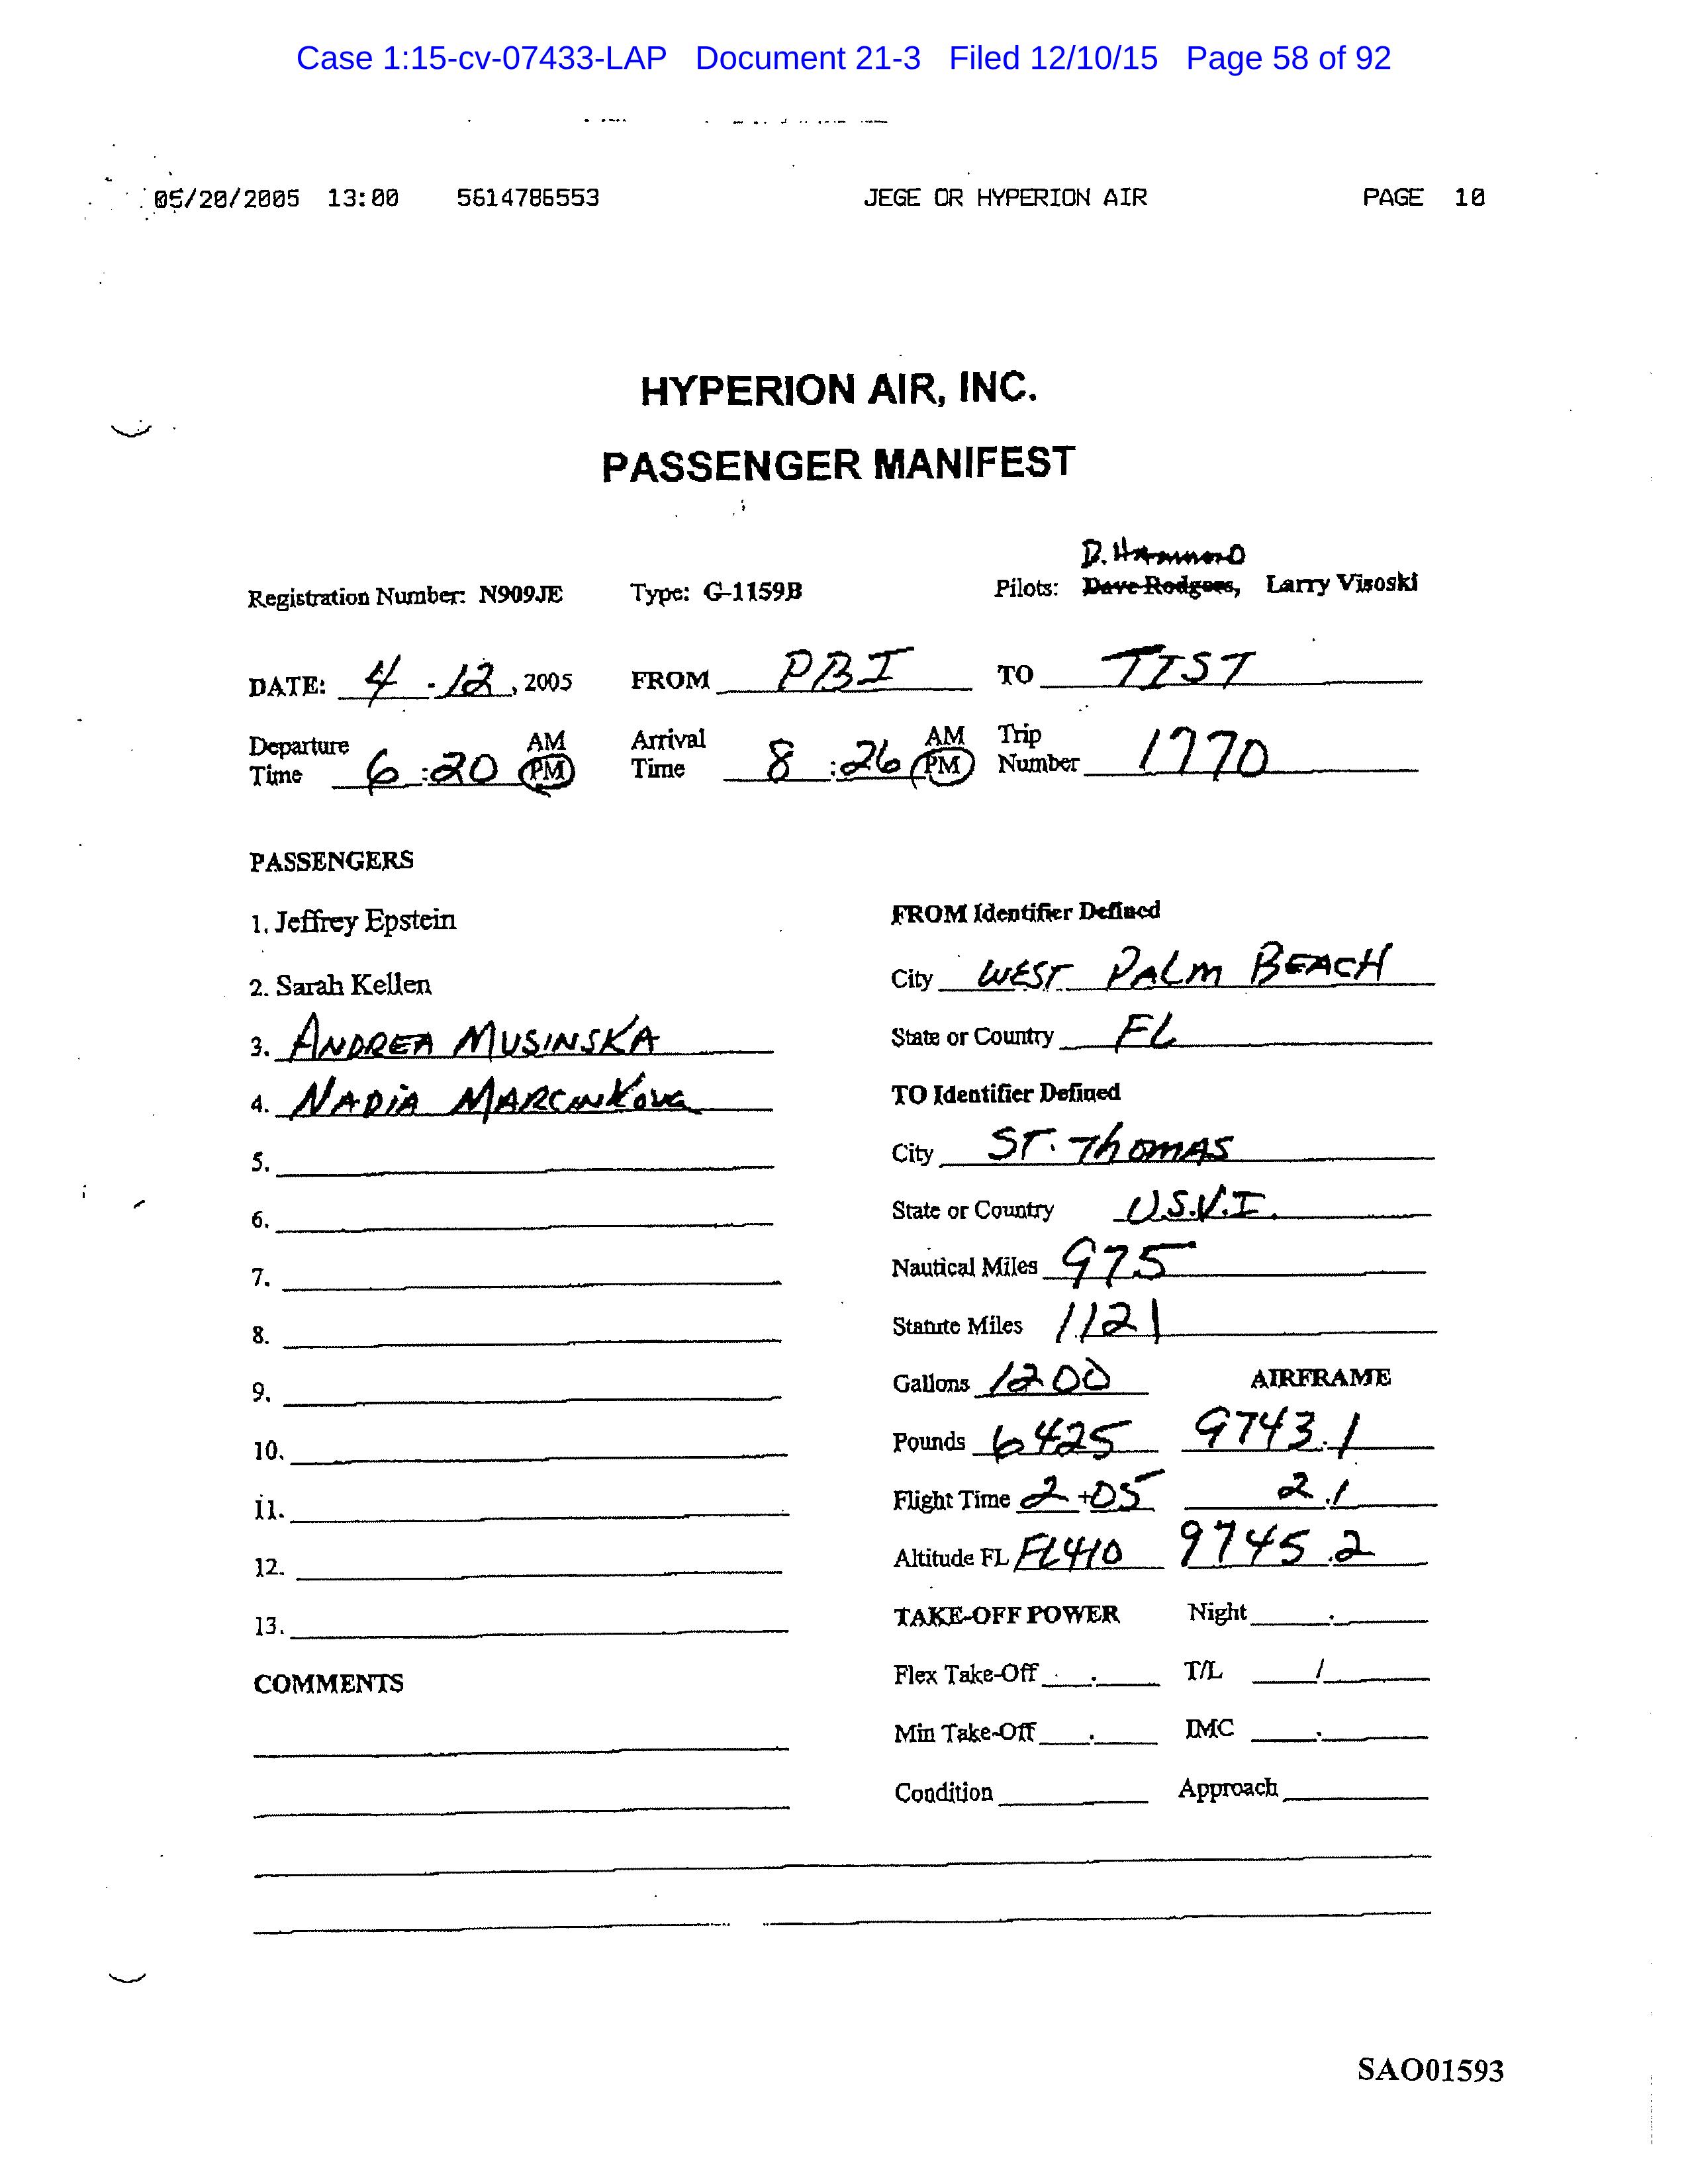 Case 1:15-cv-07433-LAP Document 21-3 Filed 12/10/15 Page 58 of 92
05/20/2005 13:00 5614786553 JEGE OR HYPERION AIR PAGE 10
HYPERION AIR, INC.
PASSENGER MANIFEST
D. HAMMOND
Registration Number: N909JE Type: G-1159B Pilots: Dave Rodgers, Larry Visoski
DATE: 4-12, 2005 FROM PBI TO TIST
Departure Time 6:20 AM PM Arrival Time 8:26 AM PM Trip Number 1770
PASSENGERS
1. Jeffrey Epstein
2. Sarah Kellen
3. ANDREA MUSINSKA
4. NADIA MARCINKOVA
5.
6.
7.
8.
9.
10.
11.
12.
13.
COMMENTS
FROM Identifier Defined
City WEST PALM BEACH
State or Country FL
TO Identifier Defined
City ST. ThOMAS
State or Country U.S.V.I.
Nautical Miles 975
Statute Miles 1121
Gallons 1200 AIRFRAME
Pounds 6425 9743.1
Flight Time 2+05 2.1
Altitude FL FL410 9745.2
TAKE-OFF POWER Night .
Flex Take-Off . T/L /
Min Take-Off . IMC .
Condition Approach
SAO01593